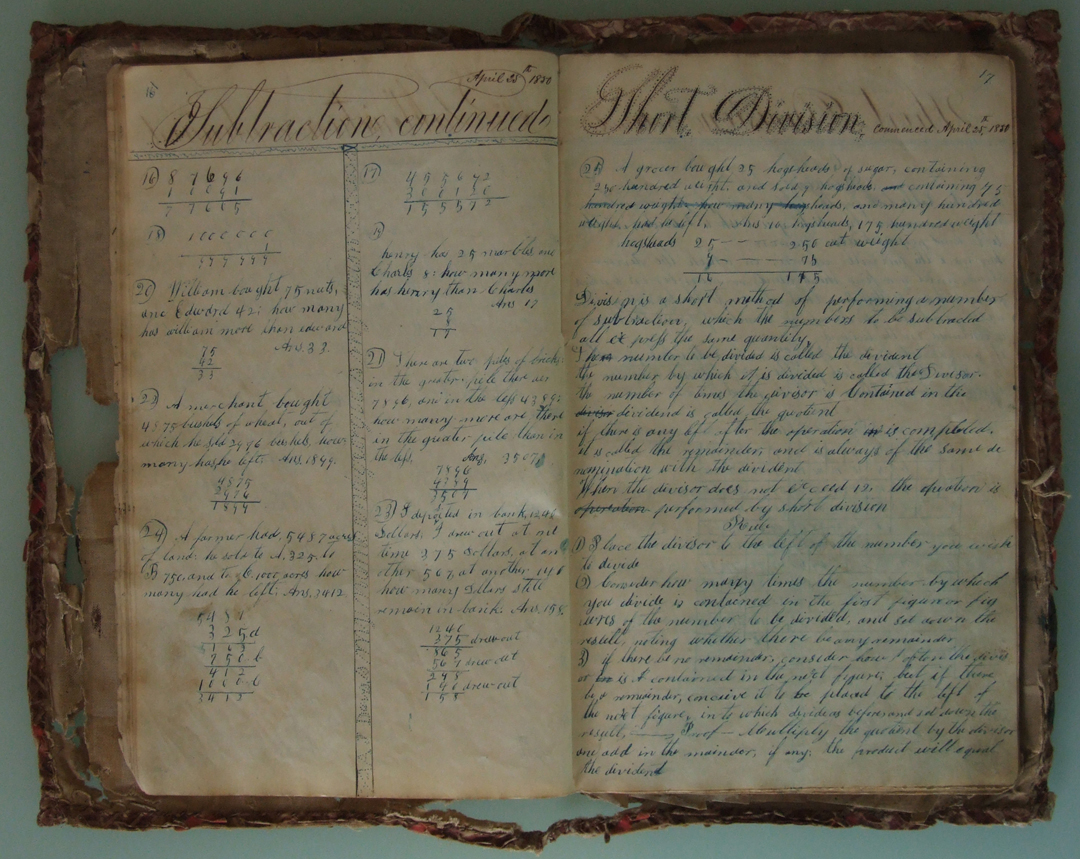 16
April 25th 1850
Subtraction, continued
16) 8 7 6 9 6
7 7 6 1 5
18)
1000000
1
999999
20) William bought 75 nuts,
and Edward 42: how many
has william more then edward
Ans. 33.
75
42
33
22) A merchant bought
4875 bushels of wheat, out of
which he sold 2976 bushels, how
many has he left. Ans. 1899.
4875
2976
1899
24) A farmer had, 5487 acres
of land, he sold to A, 325, to
B 750, and to C 1000 acres how
many had he left. Ans. 3412
5487
325 a
5162
750 b
412
1000
3412
17)
155512
19
henry has 25 marbles and
Charls 8: how many more
has henry than Charls
Ans 17
25
8
17
21) There are two piles of bricks
in the greater pile there are
7896, and in the less 4389:
how many more are There
in the greater pile than in
the less. Ans, 3507
7896
4389
3507
23) I deposited in bank, 1246
Dollars. I drew out at one
time 375 Dollars, at an
other 567, at another 148
how many Dollars still
remain in bank. Ans. 158
1240
375 drew out
865
567 drew out
298
140 drew out
158
17
Short Division, Commenced April 25th, 1850
25) A grocer bought 25 hogsheads of sugar, containing
250 hundred weight, and sold 9 hogsheads containing 75
hundred weight how many hogsheads, and many hundred
weight, had he left. Ans 16 hogsheads, 175 hundred weight
hogsheads 25 -- 250 cwt weight
9 -- -- 75
16 175
Division is a short method of performing a number
of subtraction, which the numbers to be subtracted
all express the same quantity,
The number to be divided is called the devident
the number by which it is divided is called the Divisor.
the number of times the divisor is Contained in the
divisor dividend is called the quotient
if there is any left after the operation is completed.
it is called the remainder, and is always of the same de
nomination with the divident.
When the divisor does not exceed 12. the opration is
operation performed by short division
Rule
1) Place the divisor to the left of the number you wish
to divide
2) Consider how many times the number by which
you divide is contained in the first figure or fig
ures of the number to be divided, and set down the
result, noting whether there be any remainder
3) if there be no remainder, consider how often the divis
or is contained in the next figure, but if there
be a remainder, conceive it to be placed to the left of
the next figure, in to which divide as before and set down the
result, —— Proof — Multiply the quotient by the divisor
and add in the mainder, if any. the product will equal
the divident